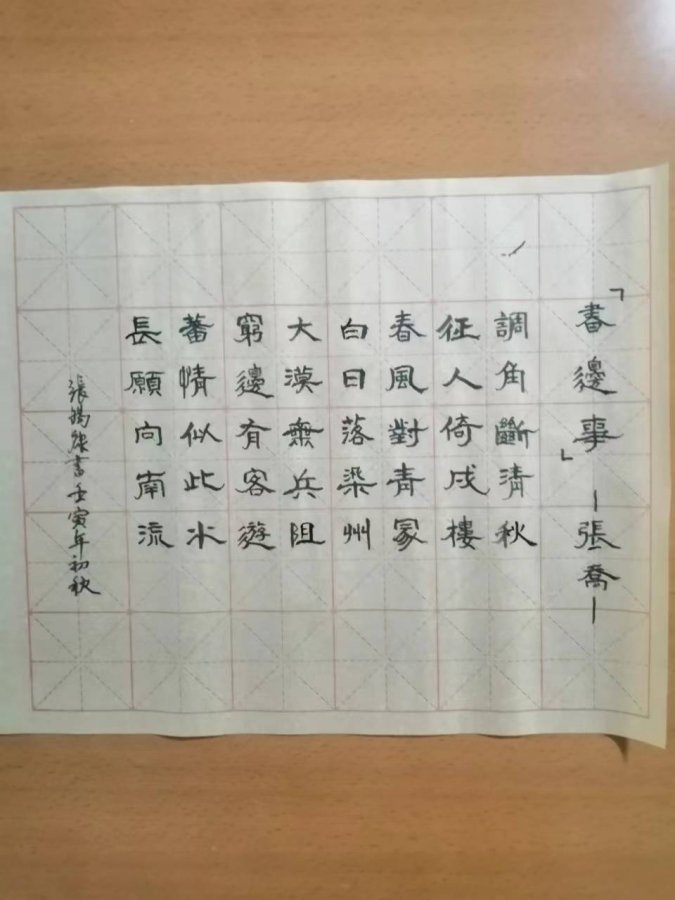 「書邊事」—張喬—
調角斷清秋
征人倚戍樓
春風對青冢
白日落梁州
大漠無兵阻
窮邊有客遊
蕃情似此水
長願向南流
張錫書壬寅年初秋